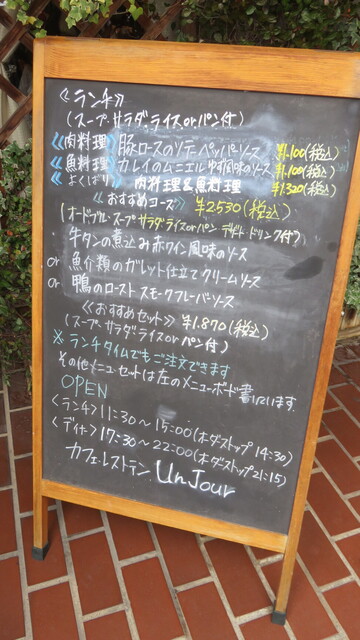 ≪ランチ≫
(スープ・サラダ、ライスorパン付)
≪肉料理≫豚ロースのソテーペッパーソース ¥1.100(税込)
≪魚料理≫カレイのムニエルゆず風味のソース ¥1.100(税込)
≪よくばり≫肉料理&魚料理 ¥1.320(税込)
≪おすすめコース≫ ¥2530(税込)
(オードブル・スープ・サラダ・ライスorパン・デザート・ドリンク付)
・牛タンの煮込み赤ワイン風味のソース
or 魚介類のガレット仕立てクリームソース
or 鴨のロースト スモークフレーバーソース
≪おすすめセット≫ ¥1.870(税込)
(スープ・サラダ・ライスorパン付)
※ランチタイムでもご注文できます
その他メニュー・セットは左のメニューボード書いています
OPEN
<ランチ>11:30〜15:00(オーダーストップ14:30)
<ディナー>17:30〜22:00(オーダーストップ21:15)
カフェ・レストラン UnJour